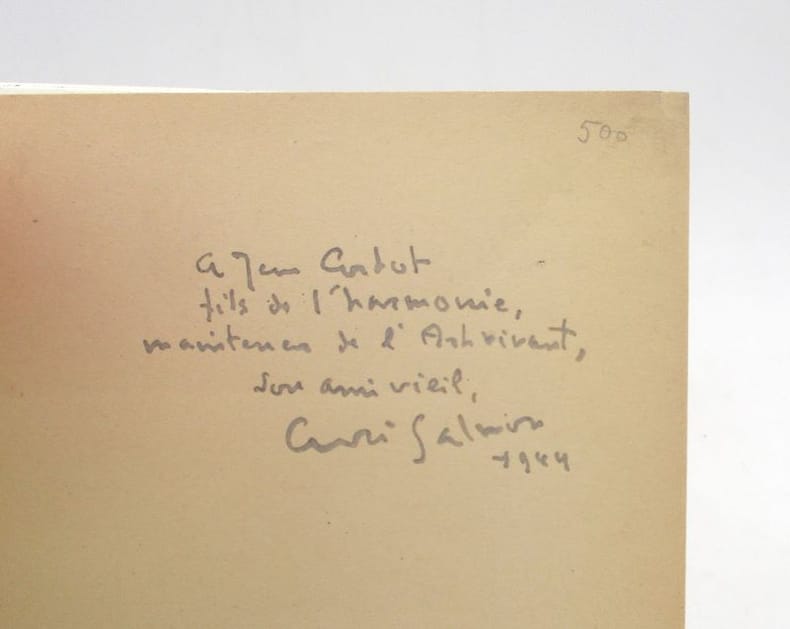 500
a Jean Cardot
fils de l'harmonie,
mainteneur de l'Art vivant,
son ami vieil,
André Salmon
1944